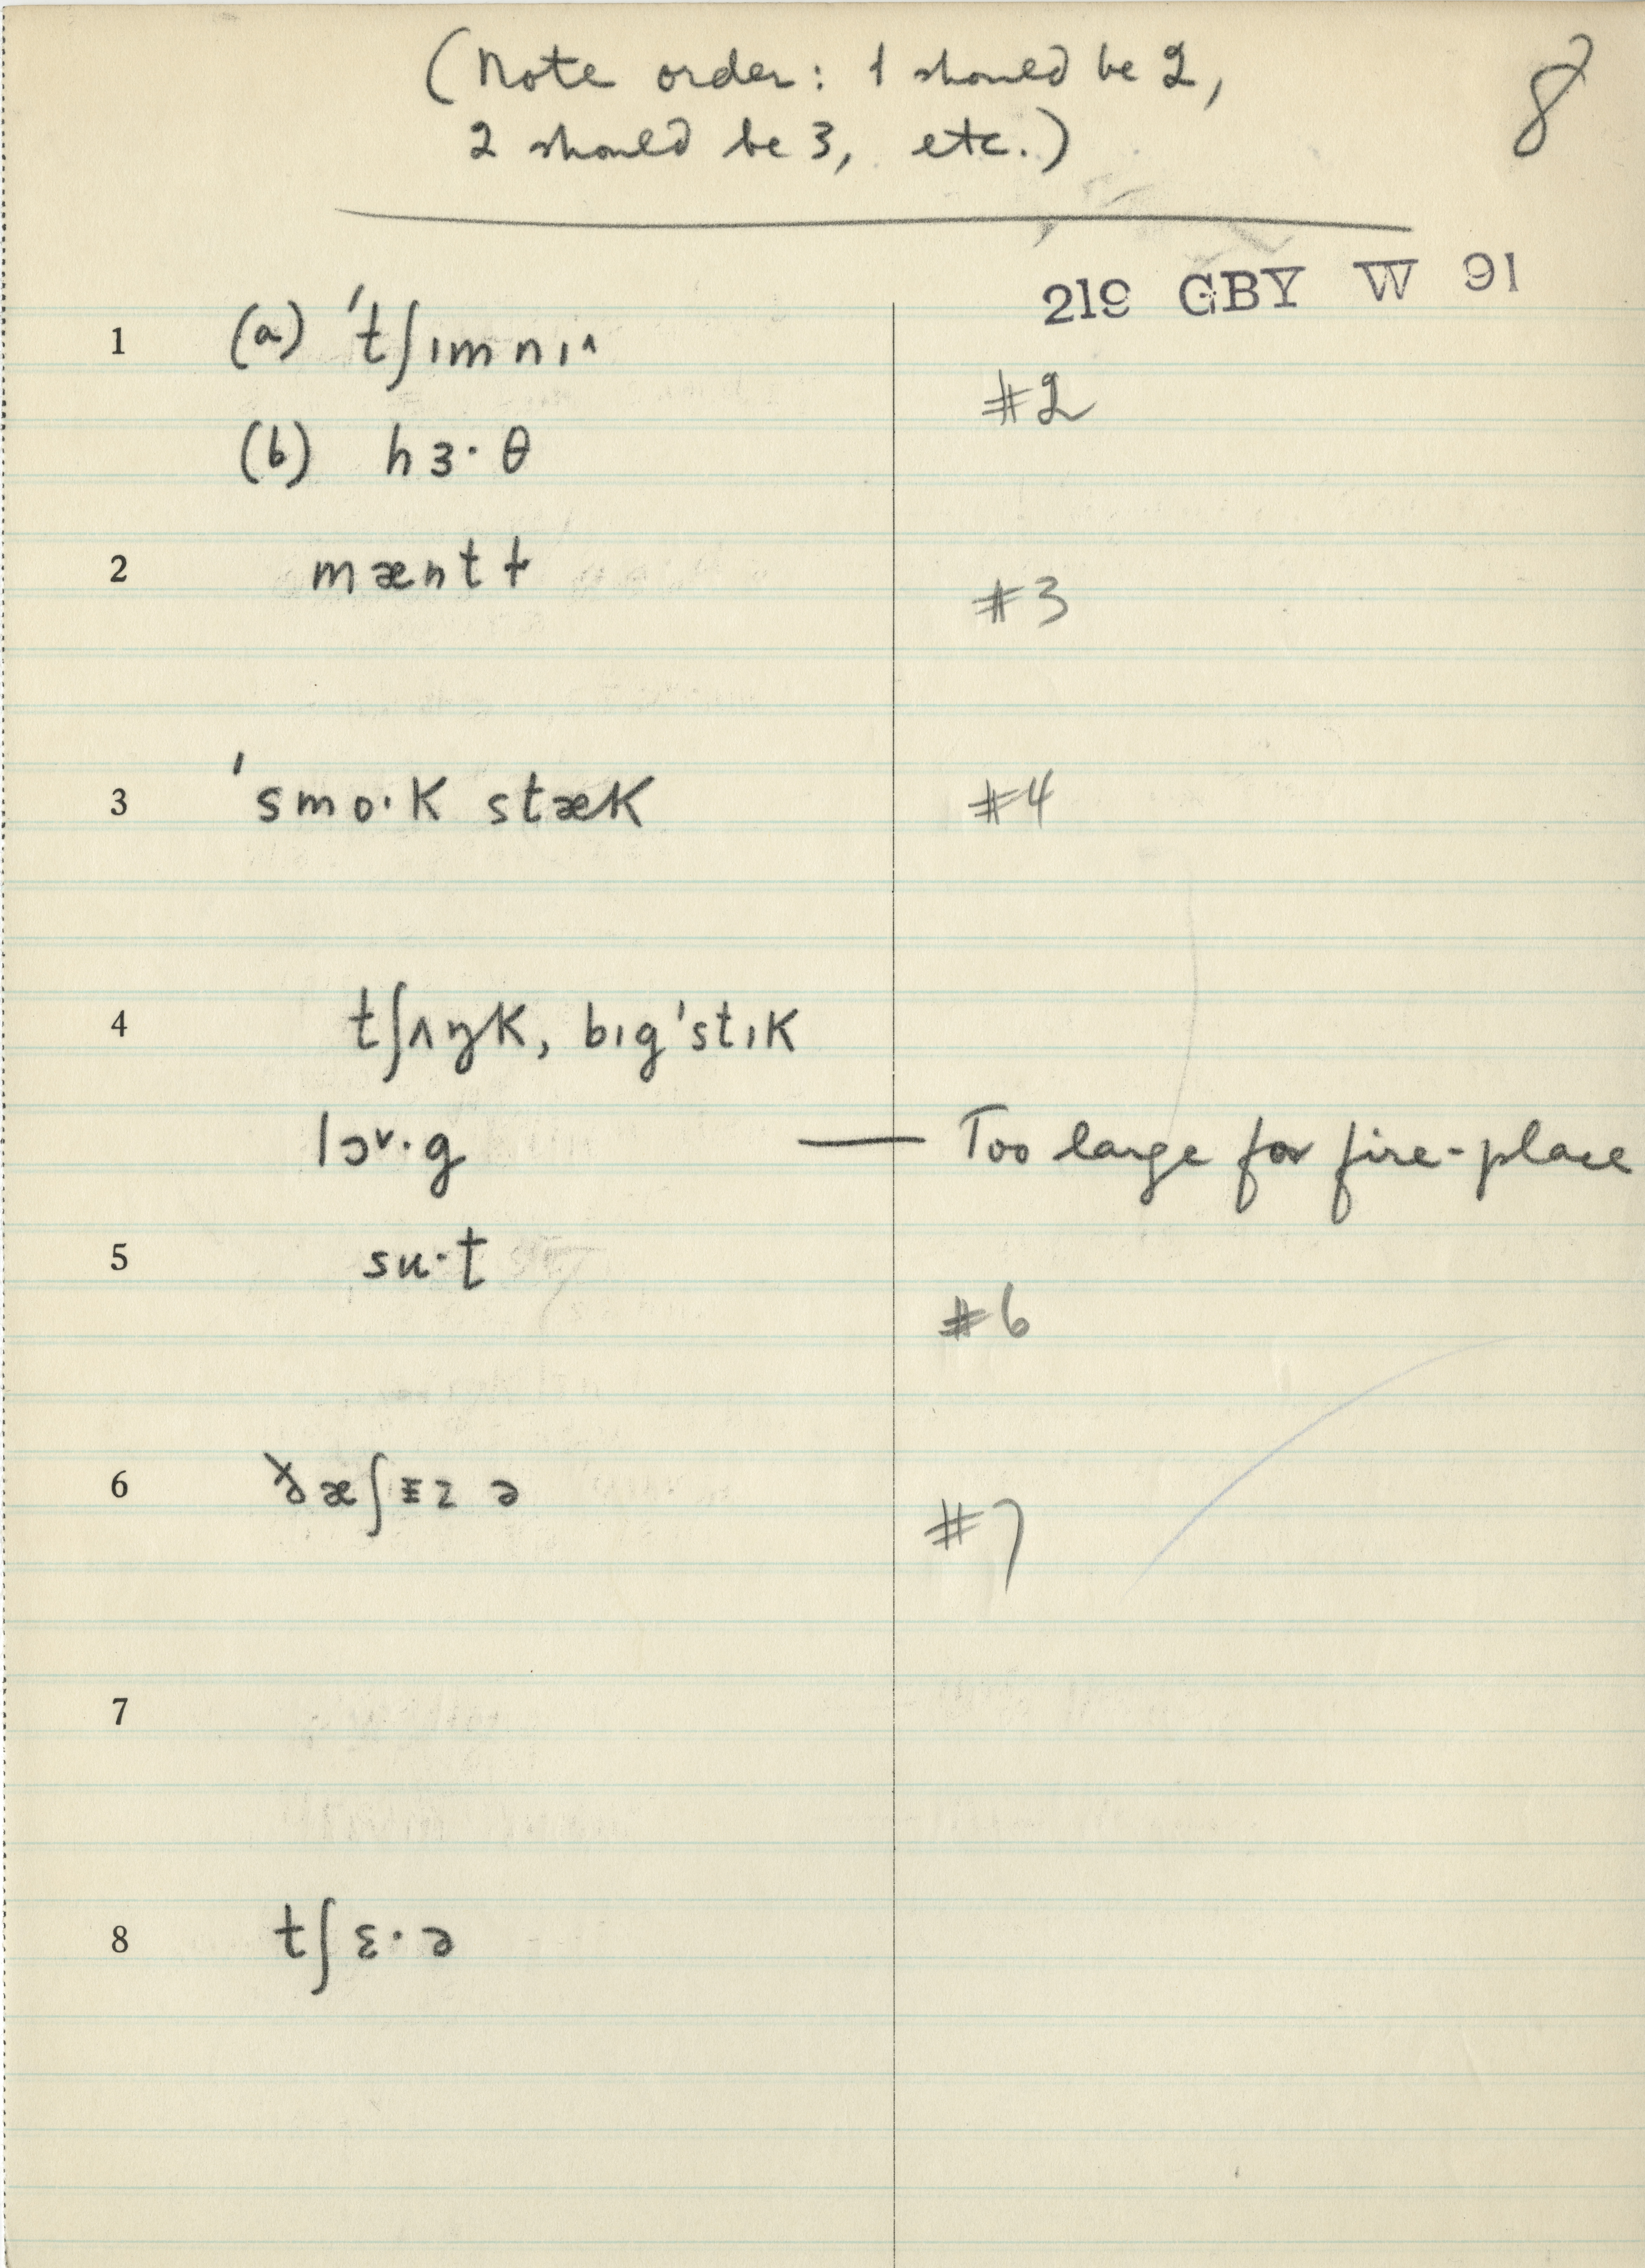 (Note order: 1 should be 2,
2 should be 3, etc.)
8
219 GBY W 91
1 (a) 'tʃɪmnɪ^
#2
(b) hɜ·θ
2 mæntɫ
#3
3 'smo·K stæK
#4
4 tʃʌŋK, bɪg'stɪK
lɔ˅·g — Too large for fire-place
5 su·t
#6
6 æʃɪz ə
#7
7
8 tʃɛ·ə